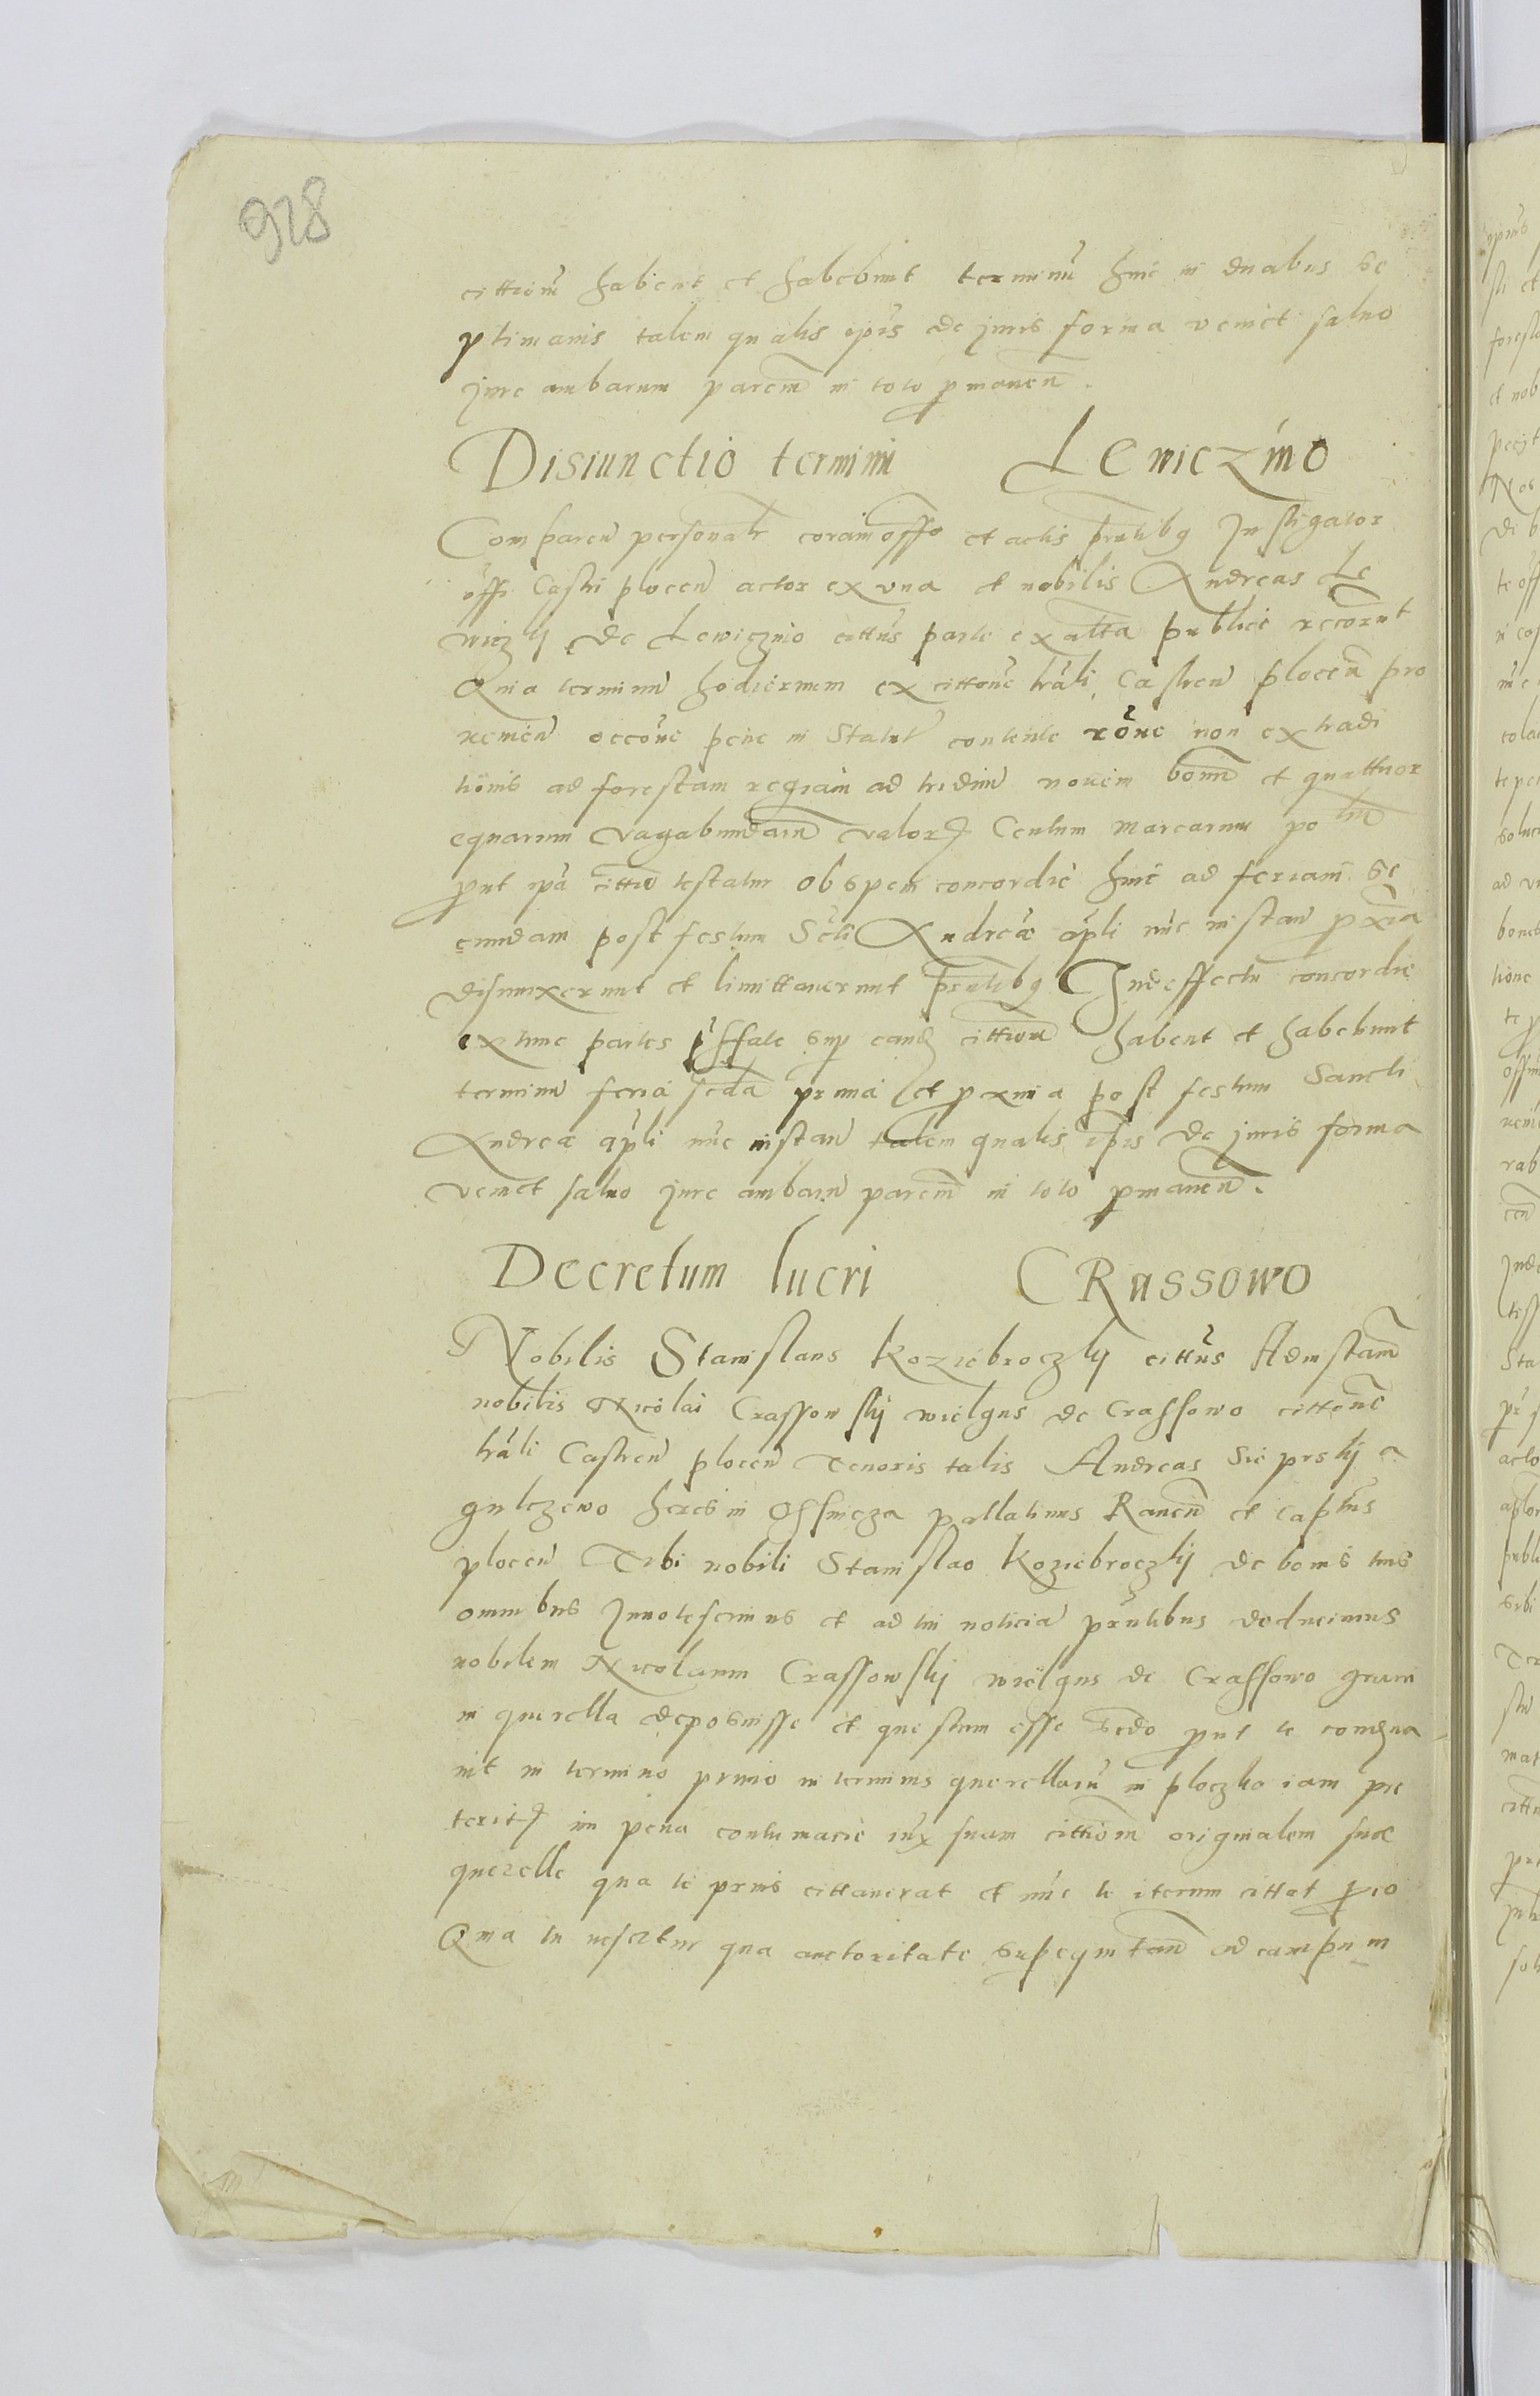 928
cittionẽ habent et habebunt terminũ hinc in duabus se
ptimanis talem qualis ip̃is de juris forma veniet saluo
jure ambarum parciũ in toto p̱manen̄.
Disiunctio termini Lewiczino
Comparen̄ personalr̃ coram offo et actis pñtibꝫ Instigator
offi Castri plocen̄ actor ex vna et nobilis Andreas Le
wiczkij de Lewiczino cittũs parte ex altera publice recõrunt
Quia terminũ hodiernum ex cittone lrãli Castren̄ plocen̄ pro
uenien̄ occõne pene in Statut contente rõne non extradi
tionis ad forestam regiam ad tridiũ nouem boum et quattuor
equarum vagabundarũ valoris Centum marcarum pol
put ipã cittio testatur ob spem concordie hinc ad feriam se
cundam post festum Scti Andreæ apli nũc instan̄ p̱xia
disiunxerunt et limittauerunt pñtibꝫ Indeffectu concordie
extunc partes p̃ffate sup eandẽ cittionẽ habent et habebunt
terminũ feria scda prima et p̱xima post festum Sancti
Andreæ apli nũc instan̄ talem qualis ip̃is de juris forma
veniet saluo jure ambarũ parciũ in toto p̱manen̄.
Decretum lucri CRassowo
Nobilis Stanislaus Koziebroczkij cittũs Ad instan̄
nobilis Nicolai Crassowskij wielgus de Crassowo cittone
lrãli Castren̄ plocen̄ Tenoris talis Andreas Sieprskij a
gulczewo heres in Ossnicza pallatinus Rauen̄ et Captũs
plocen̄ Tibi nobili Stanislao Koziebroczkij de bonis tuis
omnibus Innotescimus et ad tui noticiã pñtibus deducimus
nobilem Nicolaum Crassowskij wielgus de Crassowo grauem
in querella deposuisse et questum esse scdo put te condemna
uit in termino primo in terminis querellarũ in ploczko iam pre
teritis in pena contumacie iux suam cittionẽ originalem suæ
querelle qua te prius cittauerat et nũc te iterum cittat p̱ eo
Quia tu nescitur qua auctoritate ad campum